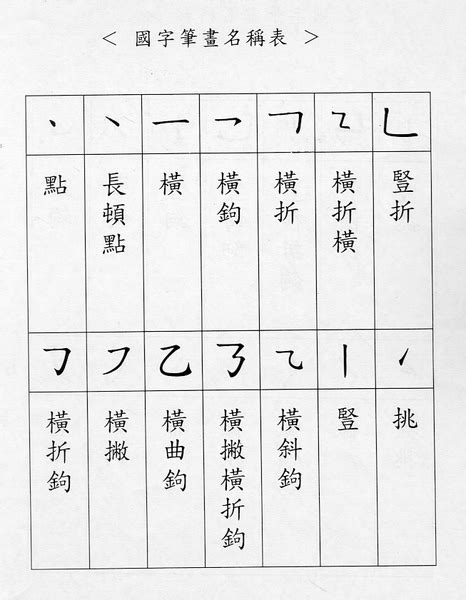 < 國字筆畫名稱表 >
丶 ㇔ 一 乛 ㇕ ㇍ 𠃊
點
長頓點
橫
橫鉤
橫折
橫折橫
豎折
𠃌 ㇇ 乙 ㇡ ⺄ 丨 ㇀
橫折鉤
橫撇
橫曲鉤
橫撇橫折鉤
橫斜鉤
豎
挑